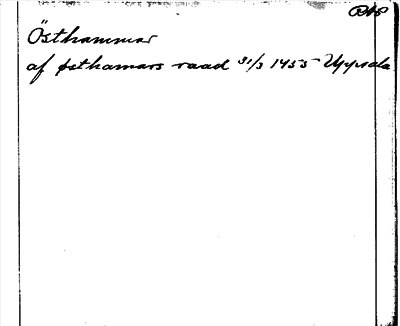 Östhammar
af østhamars raad 31/3 1455 Uppsala